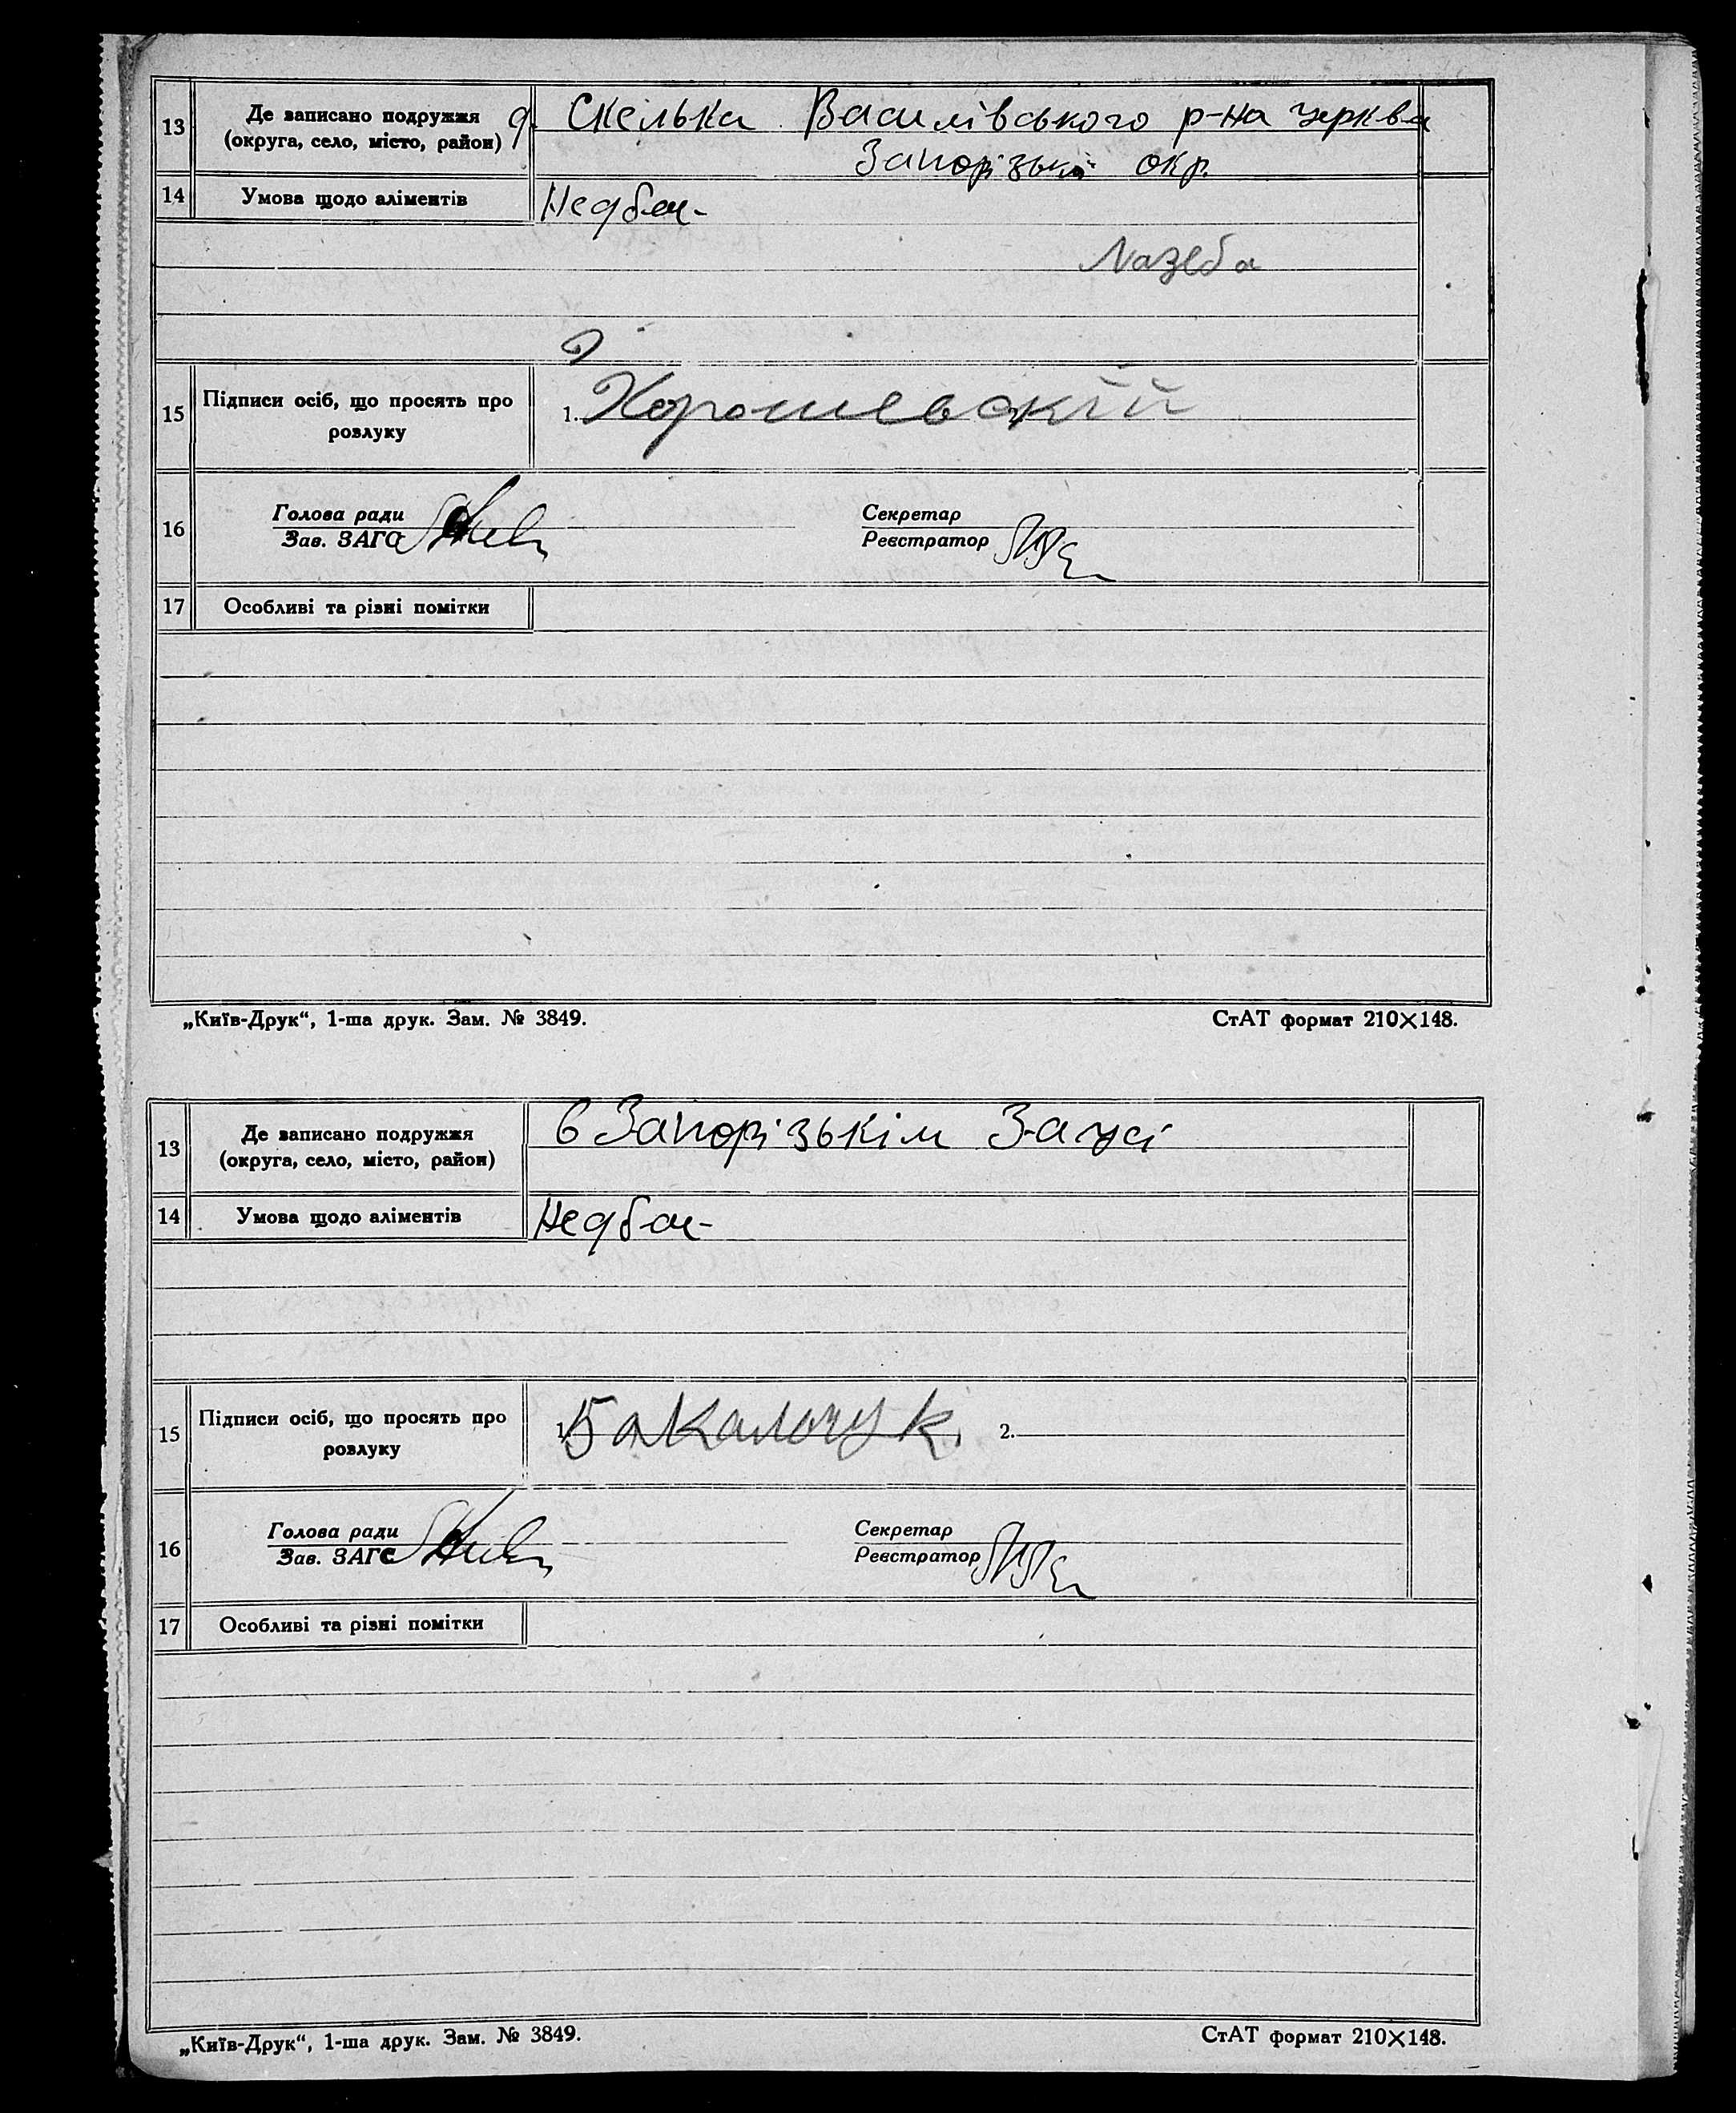 13 Де записано подружжя д. Скелька Василівського р-на церква
(округа, село, місто, район) Запорізької окр.
14 Умова щодо аліментів Недбає-
15 Підписи осіб, що просять про
розлуку
1. Хорошевскій
16 Голова ради Секретар
Зав. ЗАГС Реєстратор
17 Особливі та різні помітки
„Київ-Друк“, 1-ша друк. Зам. № 3849. СтАТ формат 210×148.
13 Де записано подружжя в Запорізькім Загсі
(округа, село, місто, район)
14 Умова щодо аліментів Недбає-
15 Підписи осіб, що просять про
розлуку
1. Бакалочук 2.
16 Голова ради Секретар
Зав. ЗАГС Реєстратор
17 Особливі та різні помітки
„Київ-Друк“, 1-ша друк. Зам. № 3849. СтАТ формат 210×148.